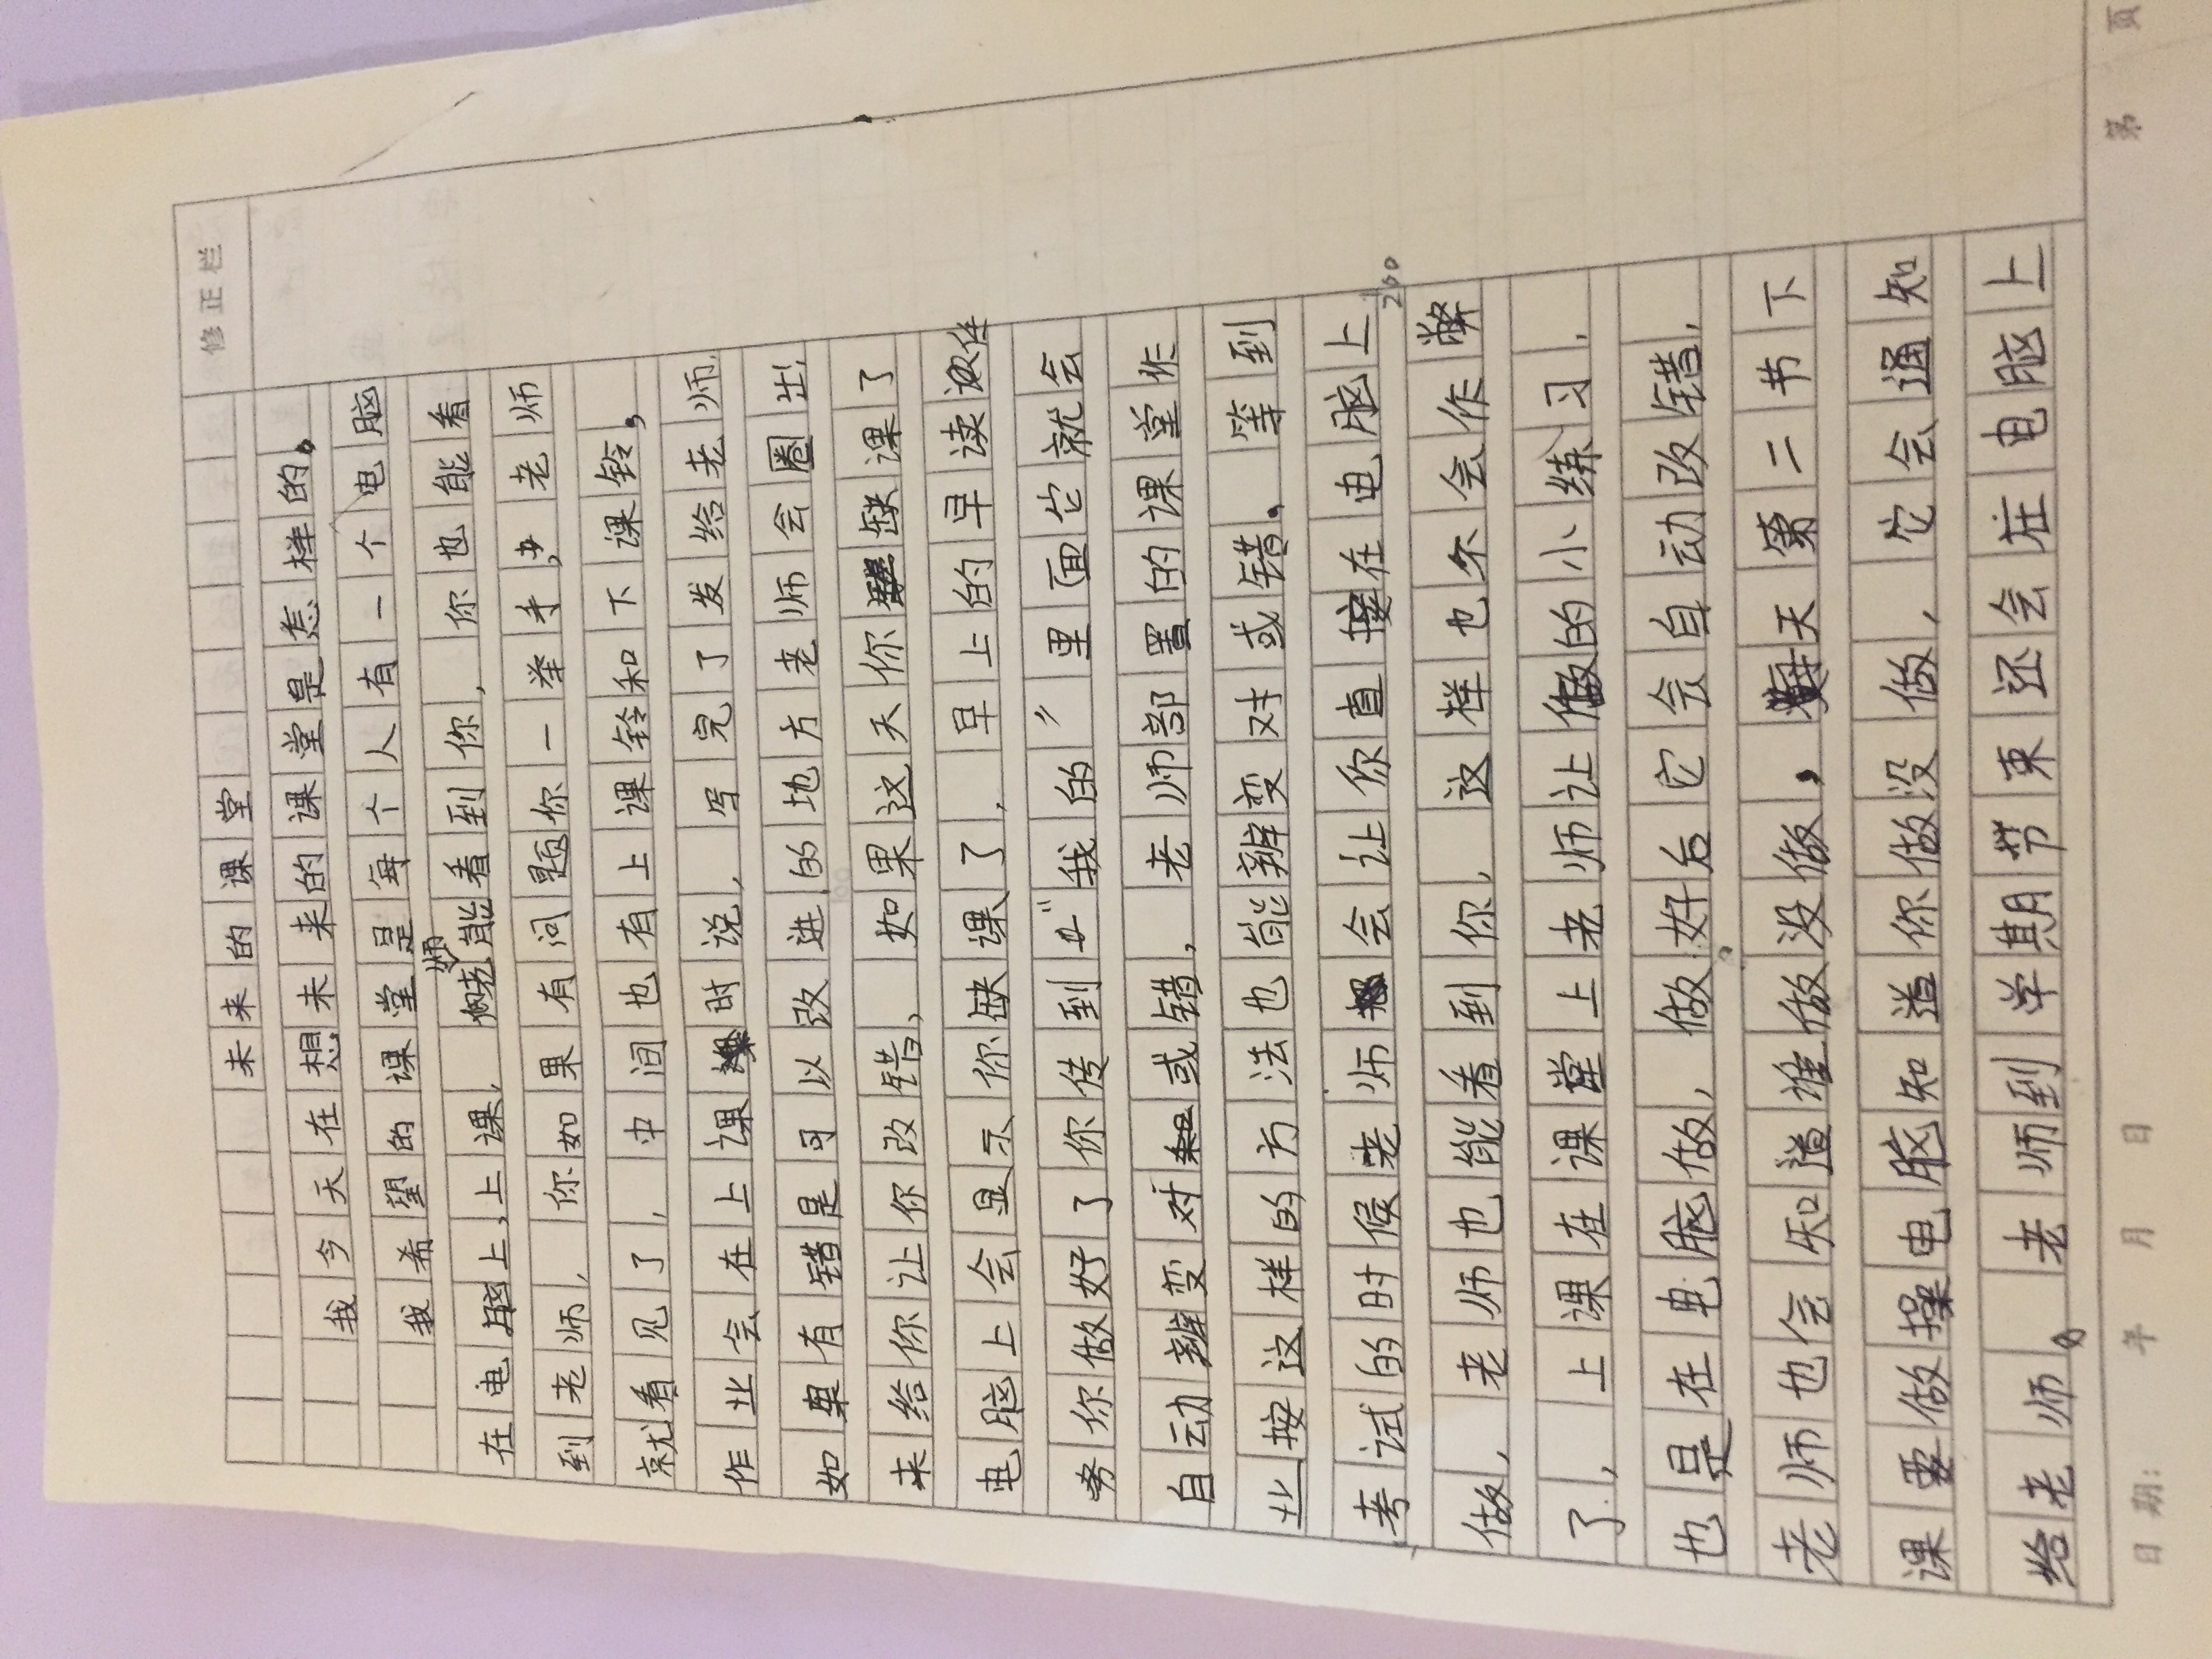 修正栏
未来的课堂
我今天在想未来的课堂是怎样的。
我希望的课堂是每个人有一个电脑
在电脑上,上课,老师能看到你,你也能看
到老师,你如果有问题你一举手,老师
就看见了,中间也有上课铃和下课铃,
作业会在上课时说,写完了发给老师,
如果有错是可以改进的地方老师会圈出
来给你让你改错,如果这天你缺课了
电脑上会显示你缺课了,早上的早读
务你做好了你传到业"我的"里面它就会
自动辨变对或错,老师部置的课堂作
业按这样的方法也能辨变对或错。等到
考试的时候老师会让你直接在电脑上
200
做,老师也能看到你,这样也不会作弊
了,上课在课堂上老师让做的小练习,
也是在电脑做,做好后它会自动改错,
老师也会知道谁做没做,每天第二节下
课要做操电脑知道你做没做,它会通知
给老师。老师到学期节束还会在电脑上
日期: 年 月 日 第 页